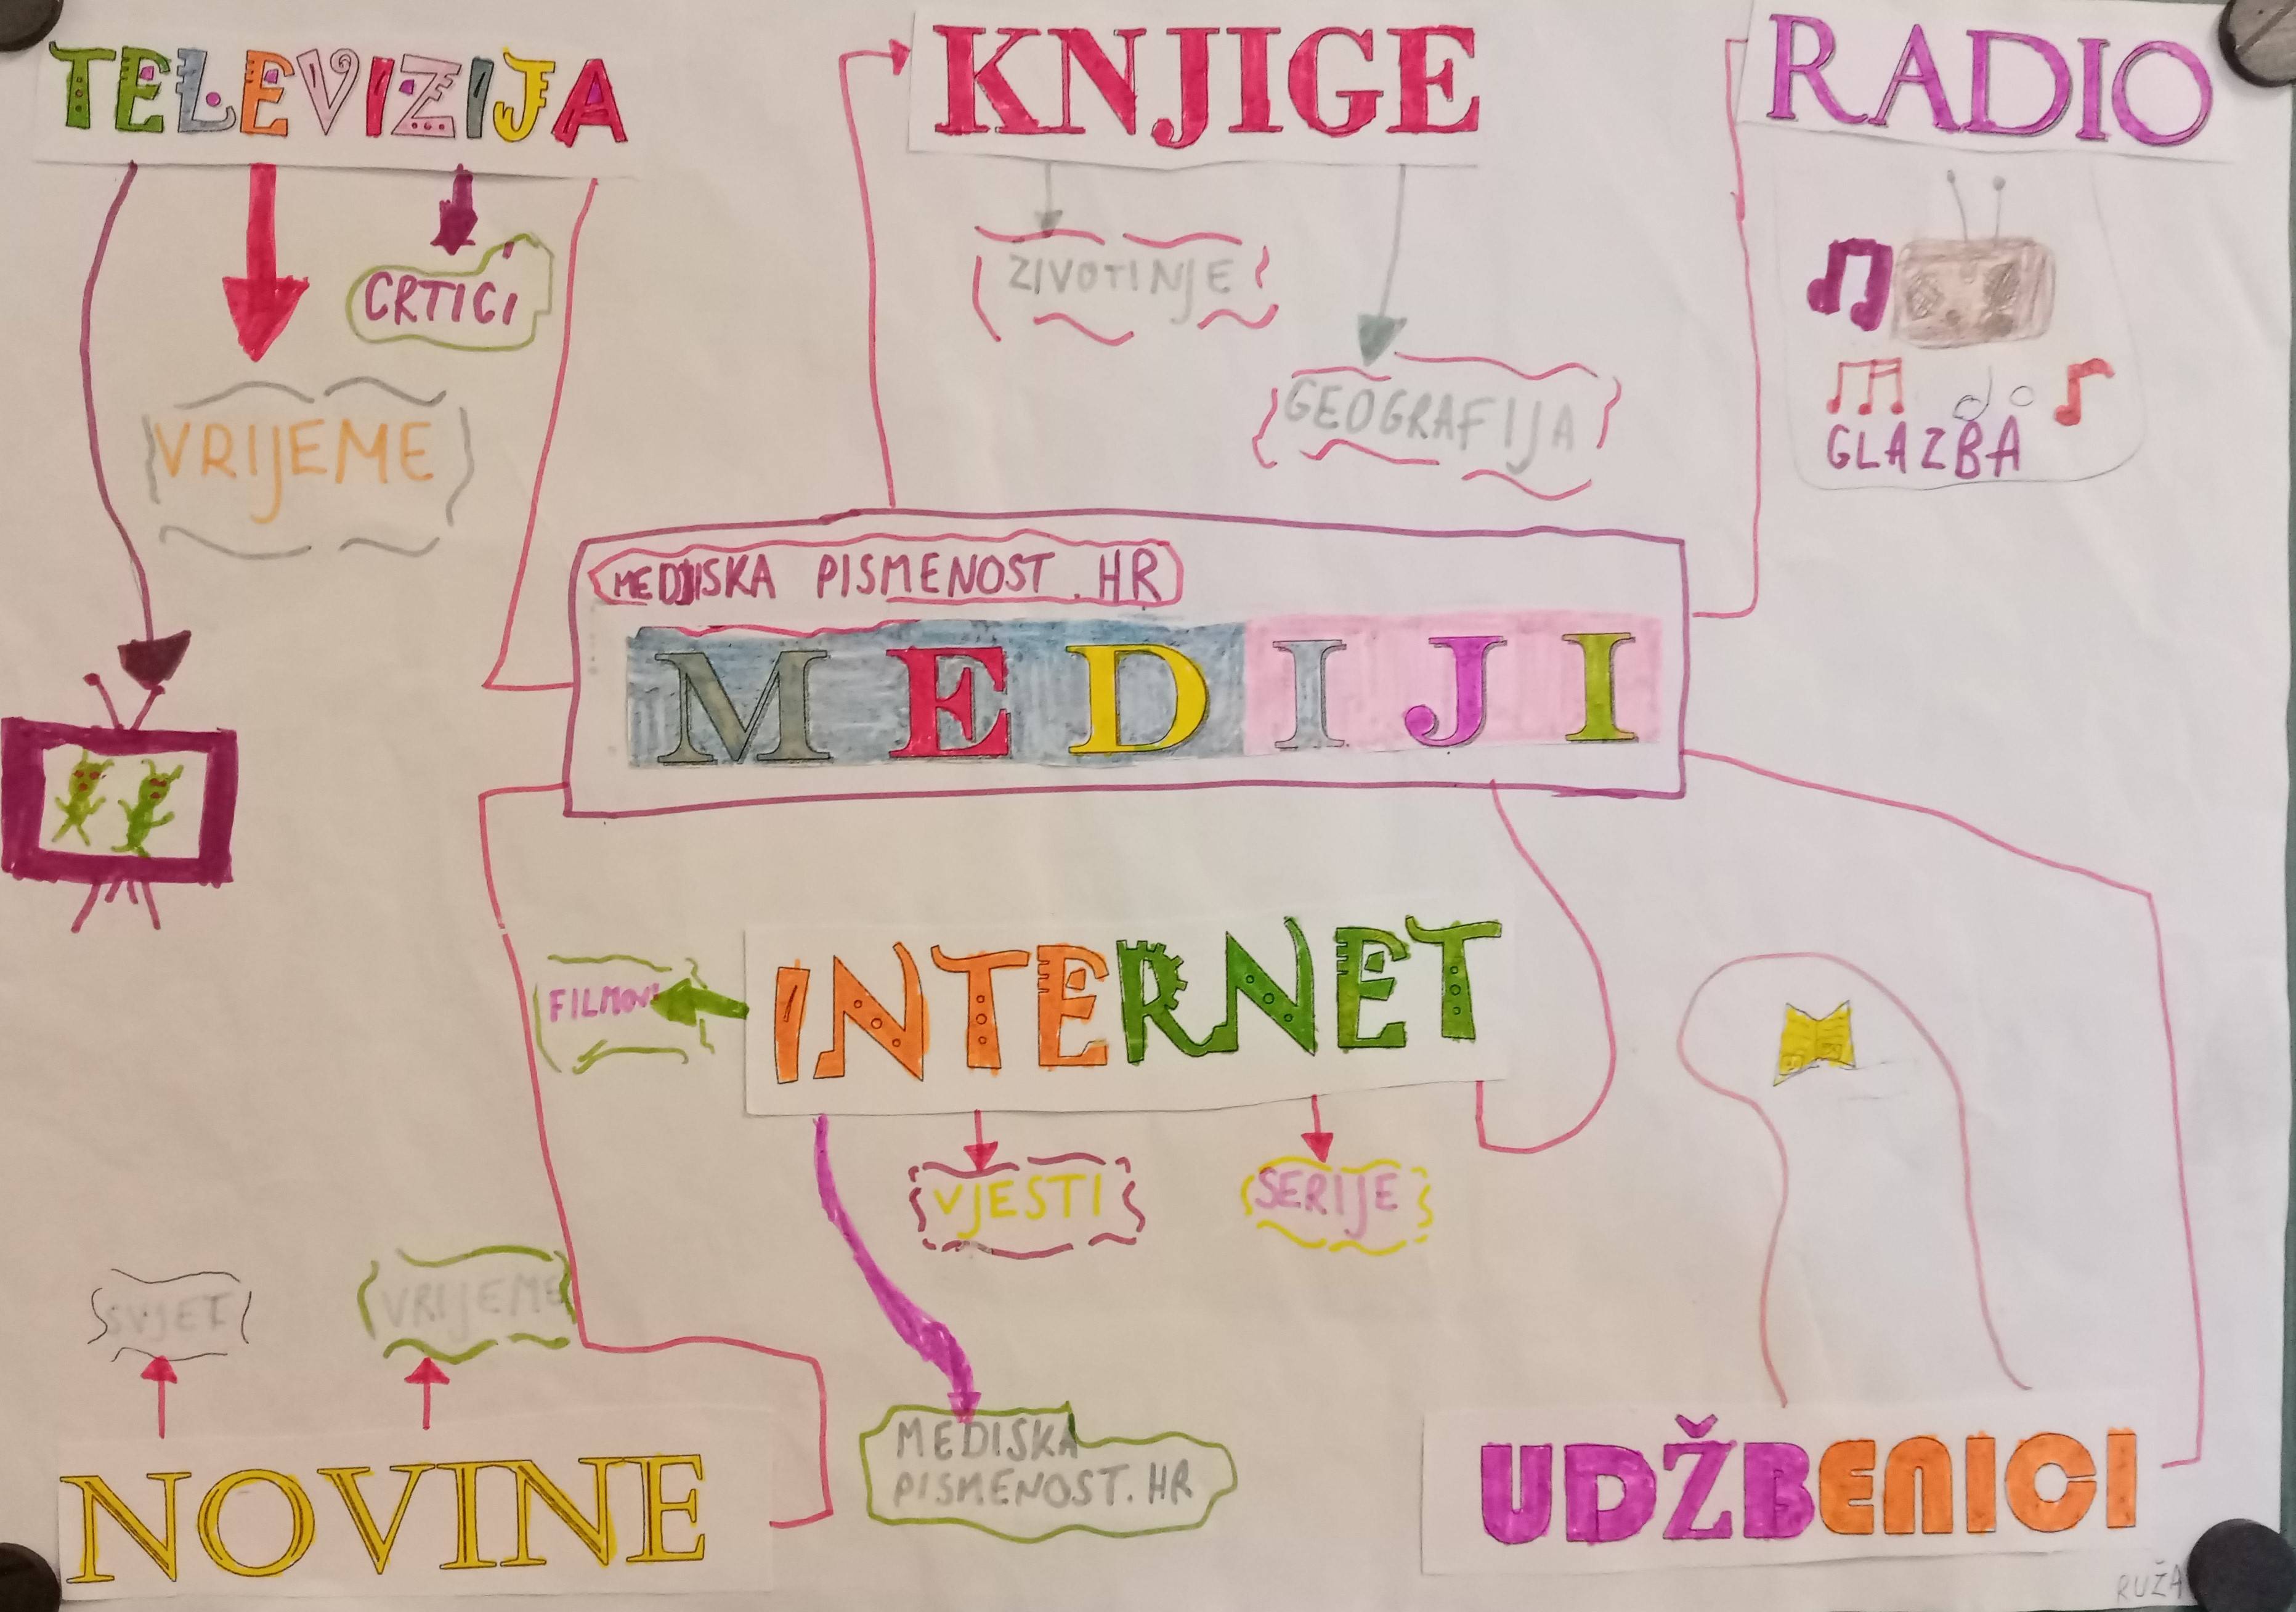 TELEVIZIJA
KNJIGE
RADIO
CRTICI
VRIJEME
ZIVOTINJE
GEOGRAFIJA
GLAZBA
MEDIJSKA PISMENOST.HR
MEDIJI
INTERNET
FILMOVI
VJESTI
SERIJE
SVJET
VRIJEME
MEDISKA
PISMENOST.HR
NOVINE
UDŽBENICI
RUŽA